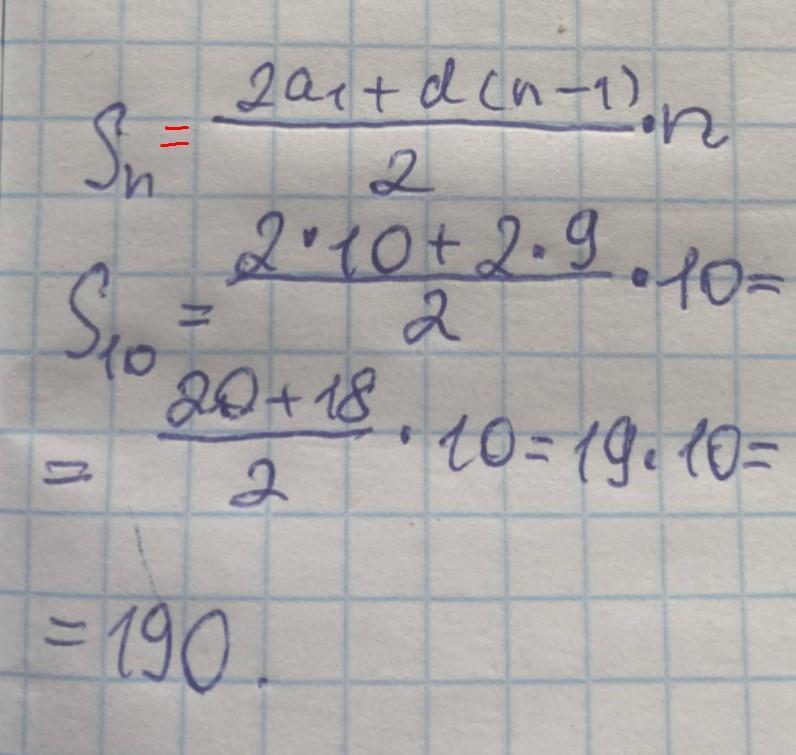 Sₙ = (2a₁ + d(n-1))/2 · n
S₁₀ = (2·10 + 2·9)/2 · 10 =
= (20 + 18)/2 · 10 = 19 · 10 =
= 190.